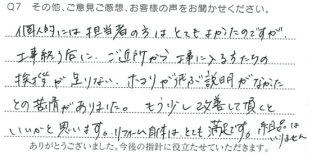 Q7 その他、ご意見ご感想、お客様の声をお聞かせください。
個人的には担当者の方はとてもよかったのですが、
工事終了后に、ご近所から工事に入る方たちの
挨拶が足りない、ホコリが飛ぶ説明がなかった
との苦情がありました。もう少し改善して頂くと
いいかと思います。リフォーム自体はとても満足です。粗品はいりません
ありがとうございました。今後の指針に役立たせていただきます。